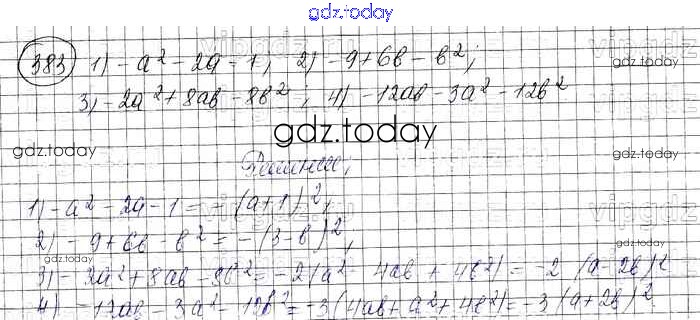 gdz.today
383 1) -a² - 2a - 1; 2) -9 + 6b - b²;
gdz.today
3) -2a² + 8ab - 8b²; 4) -12ab - 3a² - 12b²
gdz.today
gdz.today
gdz.today
1) -a² - 2a - 1 = -(a+1)²;
2) -9 + 6b - b² = -(3-b)²;
gdz.today
3) -2a² + 8ab - 8b² = -2(a² - 4ab + 4b²) = -2(a-2b)²
4) -12ab - 3a² - 12b² = -3(4ab + a² + 4b²) = -3(a+2b)²